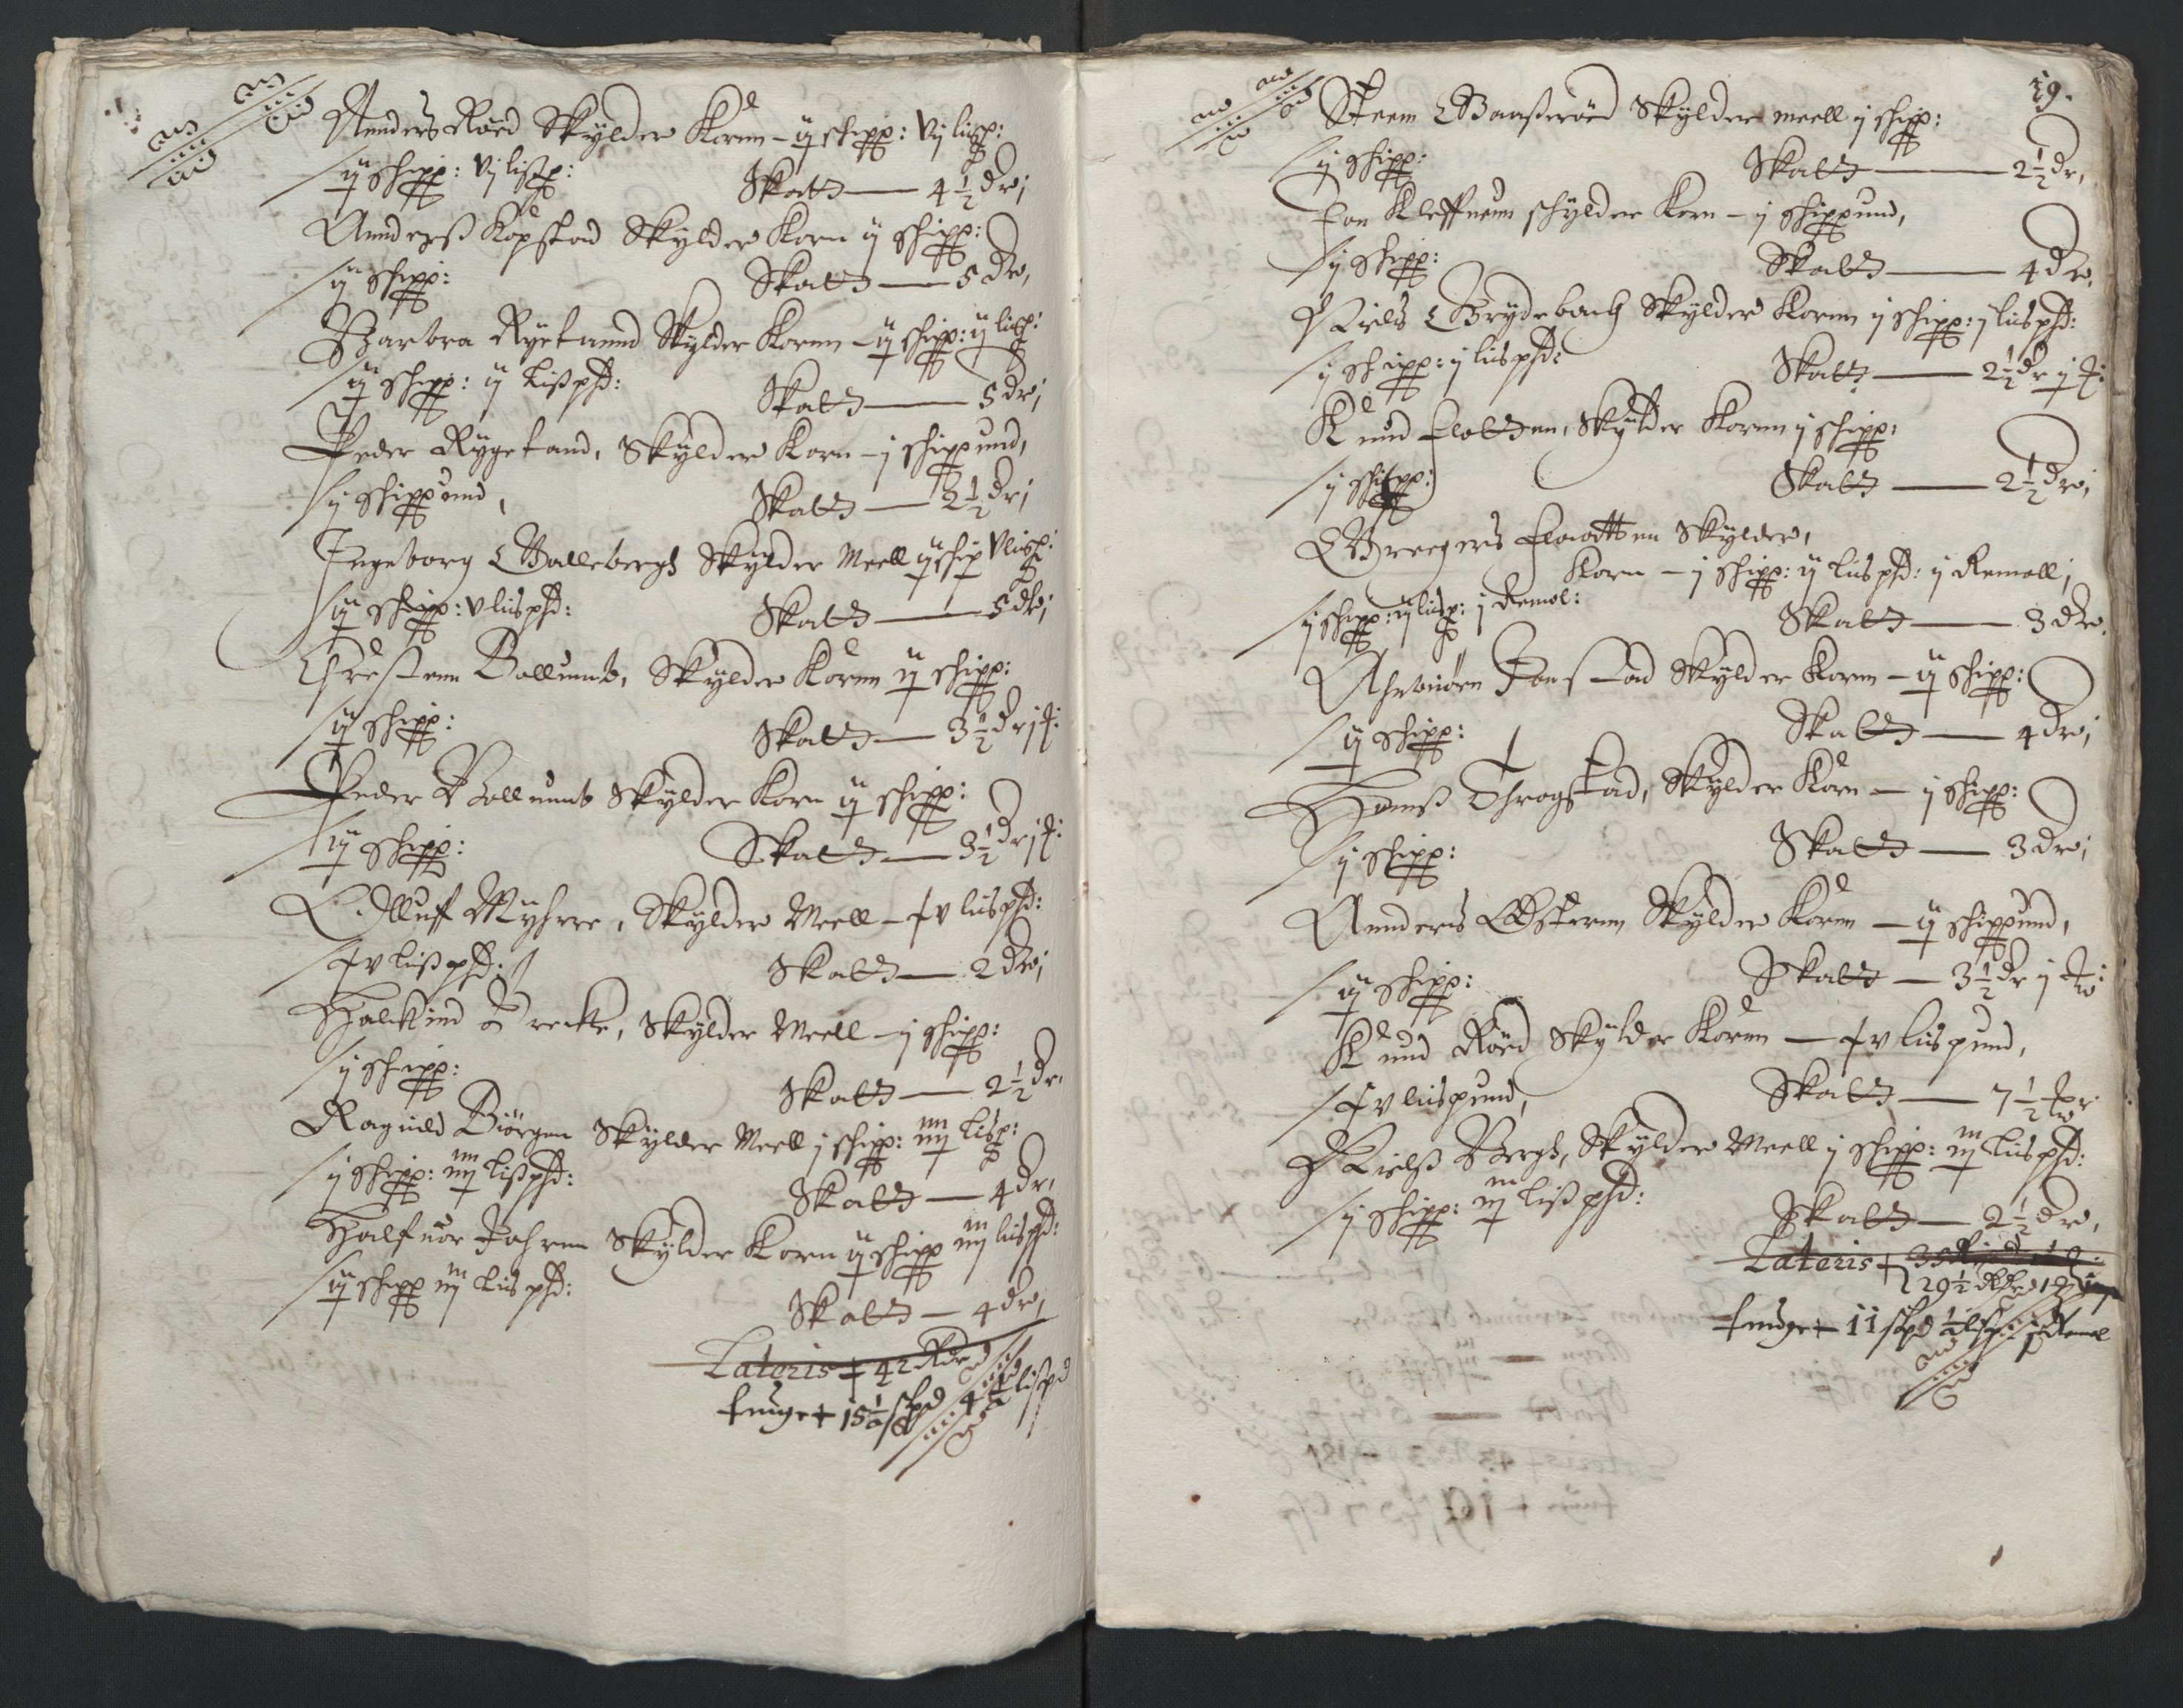 Anders Röed Skylder Korn - ij schipp: Vj lisp:
ij schipp: Vj lisp:
Skatt — 4½ dr;
Anderß Kopstad Skylder Korn ij schipp:
ij schipp:
Skatt — 5 dr,
Barbra Rygetannd Skylder Kornn - ij schipp: ij lisp:
ij schipp: ij Lißpd:
Skatt — 5 dr;
Peder Rygetand, Skylder Korn - j schippund,
j schippund,
Skatt — 2½ dr;
Ingeborg Gallebergh Skylder Meell ij schip V lisp:
ij schipp: V lispd:
Skatt — 5 dr;
Chrestenn Bollumb, Skylder Kornn ij schipp:
ij schipp:
Skatt — 3½ dr j
Peder Bollumb Skylder Korn ij schipp:
ij schipp:
Skatt — 3½ dr j
Olluff Myhre, Skylder Meell - xv lispd:
xv lißpd:
Skatt — 2 dr;
Skylder Meell - j schipp:
j schipp:
Skatt — 2½ dr,
Ragnild Biörgen Skylder Meell j schipp: iiij Lisp:
j schipp: iiij lißpd:
Skatt — 4 dr,
Halfuor Jahrenn Skylder Korn ij schipp iij lispd:
ij schipp iij Lispd:
Skatt — 4 dr,
Lateris + 42 Rdr
15½ skpd 4 lispd
19.
Steen Baaßeröed Skylder meell j schipp:
j schipp:
Skatt — 2½ dr,
Kleffuenn schylder Korn - j schippund,
j schipp:
Skatt — 4 dr,
Niels Grydebach Skylder Kornn j schipp: j lispd:
j schipp: j lispd:
Skatt — 2½ dr j
Knud Flottenn, Skylder Kornn j schipp,
j schipp:
Skatt — 2½ dr;
Greegers Flaatten Skylder,
Korn - j schipp: ij Lispd: j Remoll;
j schipp: ij lisp: j Remol:
Skatt — 3 dr.
Jonstad Skylder Kornn - ij schipp:
ij schipp:
Skatt — 4 dr;
Hanß Throgstad, Skylder Korn - j schipp:
j schipp:
Skatt — 3 dr;
Anders Østernn Skylder Kornn - ij schippund,
ij schipp:
Skatt — 3½ dr j
Knud Röed Skylder Kornn - xv lispund,
xv lispund,
Skatt — 7½
Nielß Bergh, Skylder Meell j schipp: iij Lispd:
j schipp: iij Lißpd:
Skatt — 2½ dr,
Lateris +
29½ Rdr
11 skpd